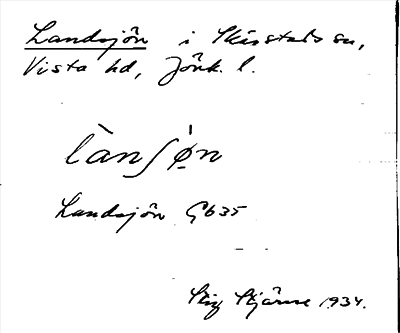 Landsjön i Skärstads sn,
Vista hd, Jönk. l.
lànʃø̀n
Landsjön Gb35
Stig Stjärne 1934.